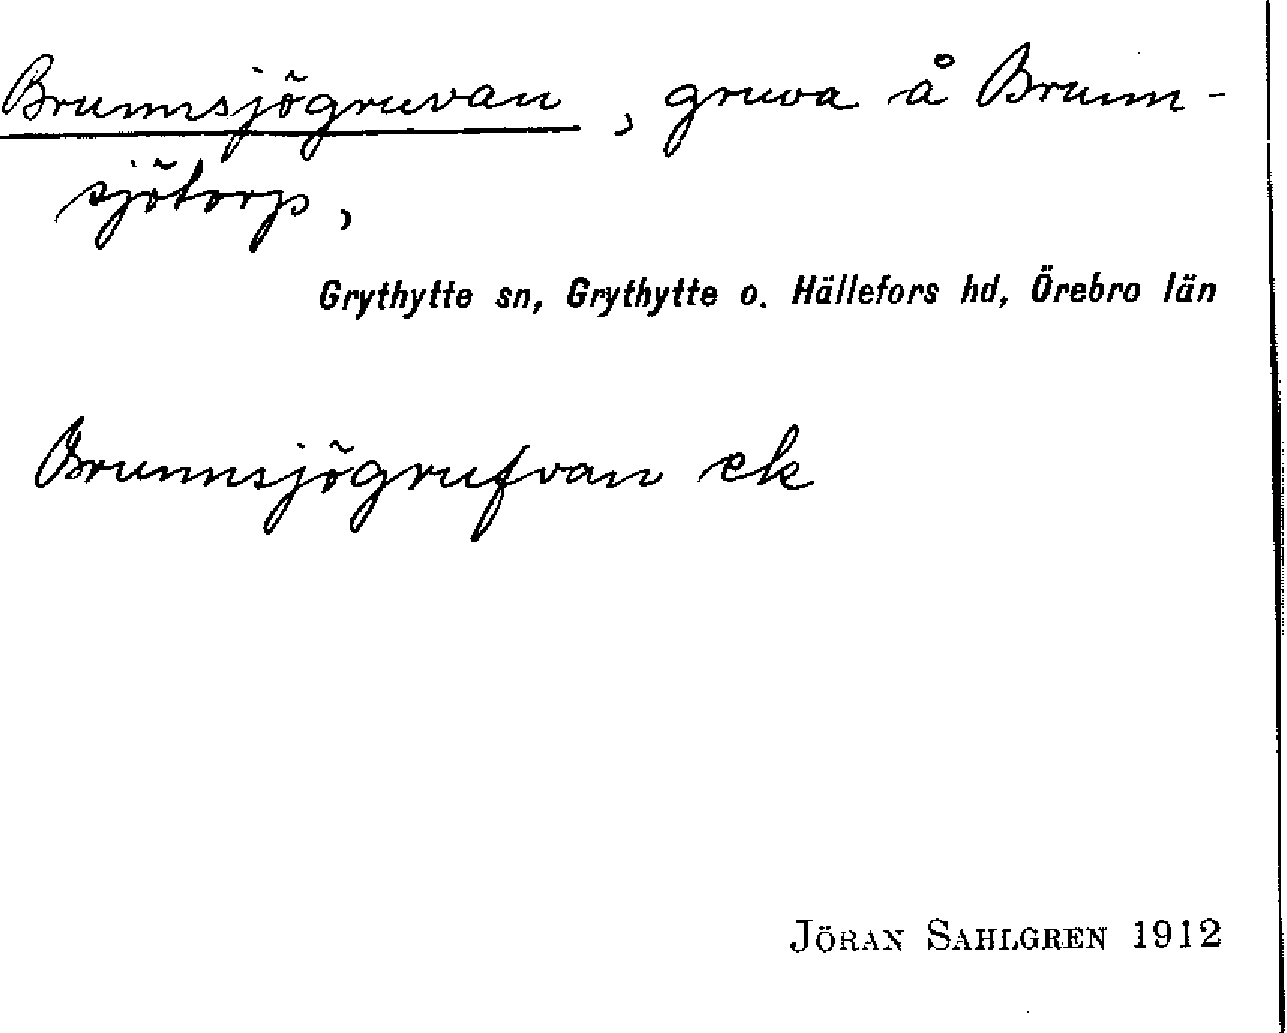 Brunnsjögruvan, gruva å Brunn-
sjötorp,
Grythytte sn, Grythytte o. Hällefors hd, Örebro län
Brunnsjögrufvan ek
JÖRAN SAHLGREN 1912